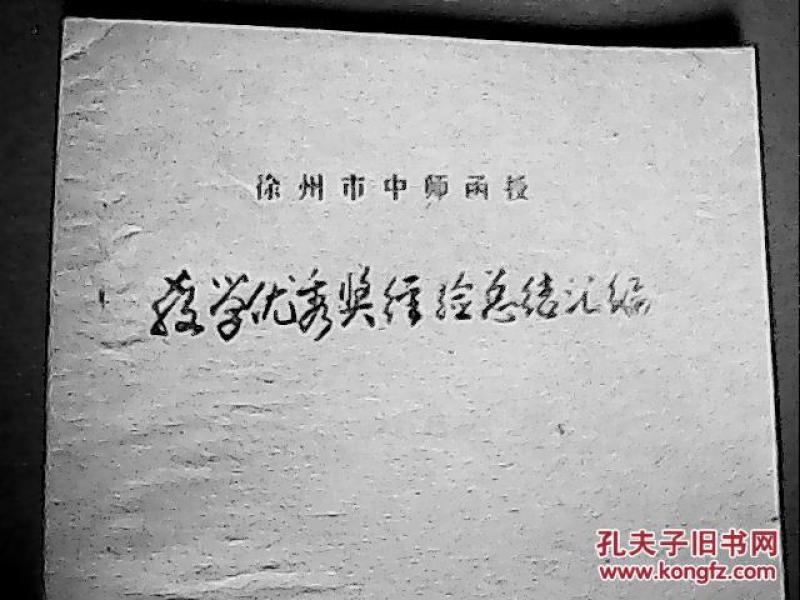 徐州市中师函授
教学优秀奖经验总结汇编
孔夫子旧书网
www.kongfz.com